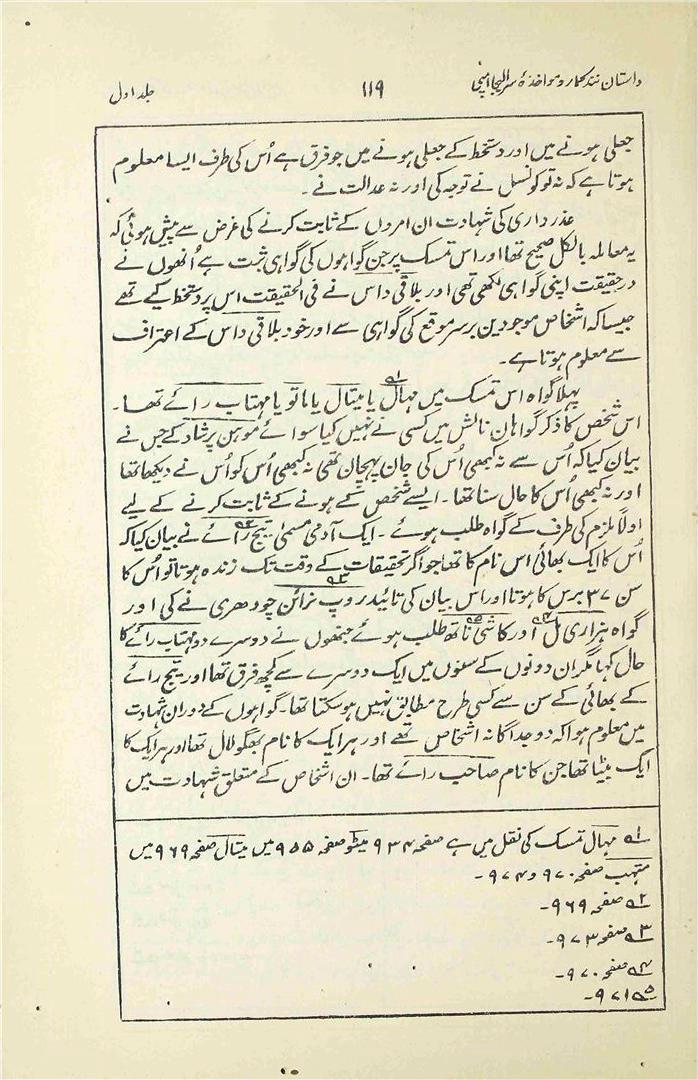 داستان نندکمار و مواخذۂ سر الیجا امپی ۱۱۹ جلد اول
جعلی ہونے میں اور دستخط کے جعلی ہونے میں جو فرق ہے اُس کی طرف ایسا معلوم
ہوتا ہے کہ نہ تو کونسل نے توجہ کی اور نہ عدالت نے ۔
عذر داری کی شہادت ان امروں کے ثابت کرنے کی غرض سے پیش ہوئی کہ
یہ معاملہ بالکل صحیح تھا اور اس تمسک پر جن گواہوں کی گواہی ثبت ہے اُنھوں نے
درحقیقت اپنی گواہی لکھی تھی اور بلاقی داس نے فی الحقیقت اس پر دستخط کیے تھے
جیسا کہ اشخاص موجودین برسر موقع کی گواہی سے اور خود بلاقی داس کے اعتراف
سے معلوم ہوتا ہے ۔
پہلا گواہ اس تمسک میں مہال۱؎ یا میتال یا ماتو یا مہتاب رائے تھا ۔
اس شخص کا ذکر گواہان نالش میں کسی نے نہیں کیا سوائے موہن پرشاد کے جس نے
بیان کیا کہ اُس سے نہ کبھی اُس کی جان پہچان تھی نہ کبھی اُس کو اُس نے دیکھا تھا
اور نہ کبھی اُس کا حال سنا تھا ۔ ایسے شخص کے ہونے کے ثابت کرنے کے لیے
اولاً ملزم کی طرف کے گواہ طلب ہوئے ۔ ایک آدمی مسمیٰ تیج رائے۲؎ نے بیان کیا کہ
اُس کا ایک بھائی اس نام کا تھا جو اگر تحقیقات کے وقت تک زندہ ہوتا تو اُس کا
سن ۳۷ برس کا ہوتا اور اس بیان کی تائید روپ نرائن چودھری۳؎ نے کی اور
گواہ ہزاری مل۴؎ اور کاشی ناتھ۵؎ طلب ہوئے جنھوں نے دوسرے دو مہتاب رائے کا
حال کہا مگر ان دونوں کے سنوں میں ایک دوسرے سے کچھ فرق تھا اور تیج رائے
کے بھائی کے سن سے کسی طرح مطابق نہیں ہو سکتا تھا ۔ گواہوں کے دوران شہادت
میں معلوم ہوا کہ دو جداگانہ اشخاص تھے اور ہر ایک کا نام بھگولال تھا اور ہر ایک کا
ایک بیٹا تھا جن کا نام صاحب رائے تھا ۔ ان اشخاص کے متعلق شہادت میں
۱؎ مہال تمسک کی نقل میں ہے صفحہ ۹۳۴ میٹو صفحہ ۹۵۵ میں میتال صفحہ ۹۶۹ میں
متہب صفحہ ۹۷۰ و ۹۷۴ ۔
۲؎ صفحہ ۹۶۹ ۔
۳؎ صفحہ ۹۷۳ ۔
۴؎ صفحہ ۹۷۰ ۔
۵؎ ۹۷۱ ۔